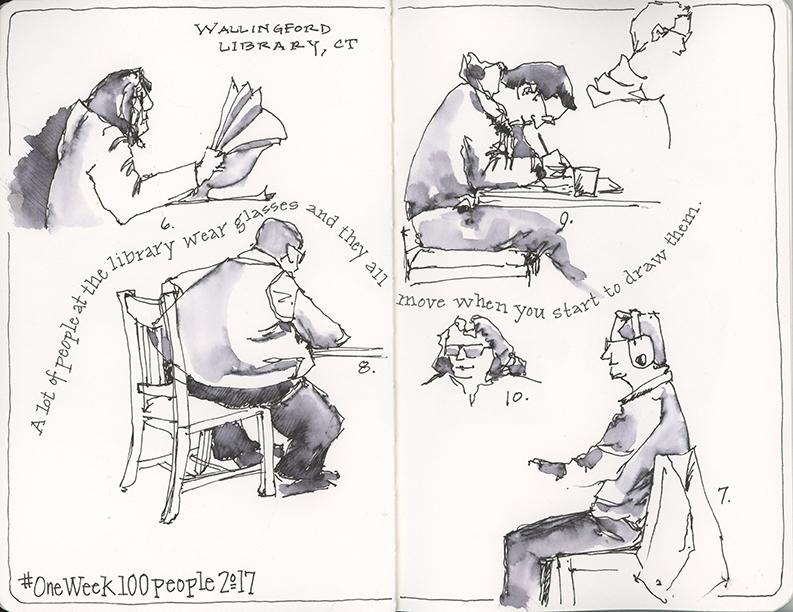 WALLINGFORD
LIBRARY, CT
6.
9.
A lot of people at the library wear glasses and they all move when you start to draw them.
8.
10.
7.
#OneWeek100people2017